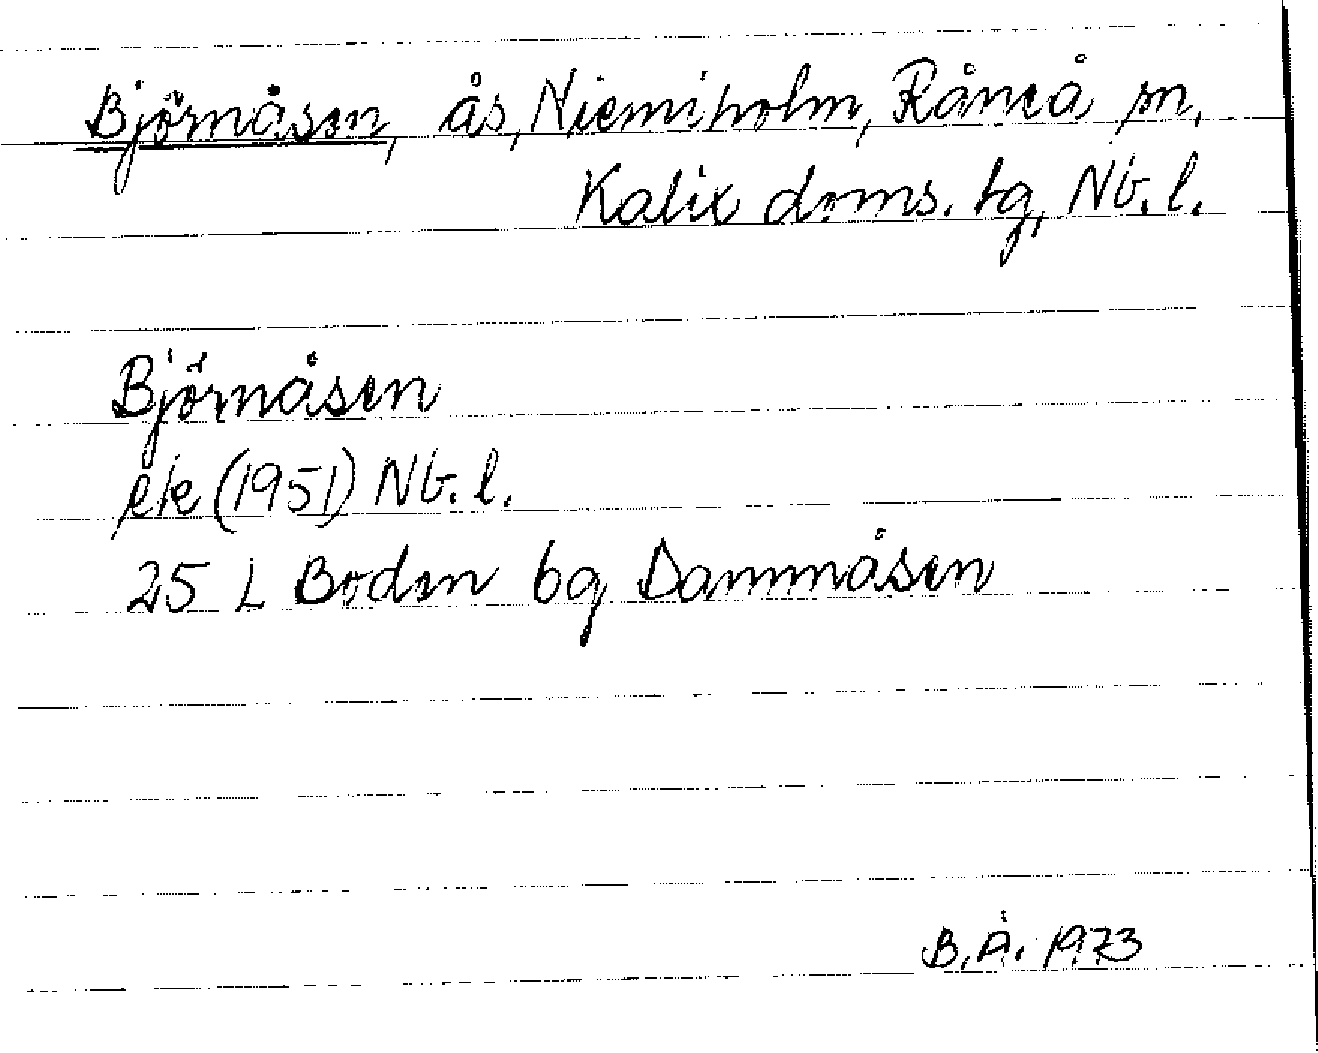 Björnåsen, ås, Niemiholm, Råneå sn,
Kalix doms. tg, Nb. l.
Björnåsen
ek (1951) Nb. l.
25 L Boden bg Dammåsen
B.Å. 1973